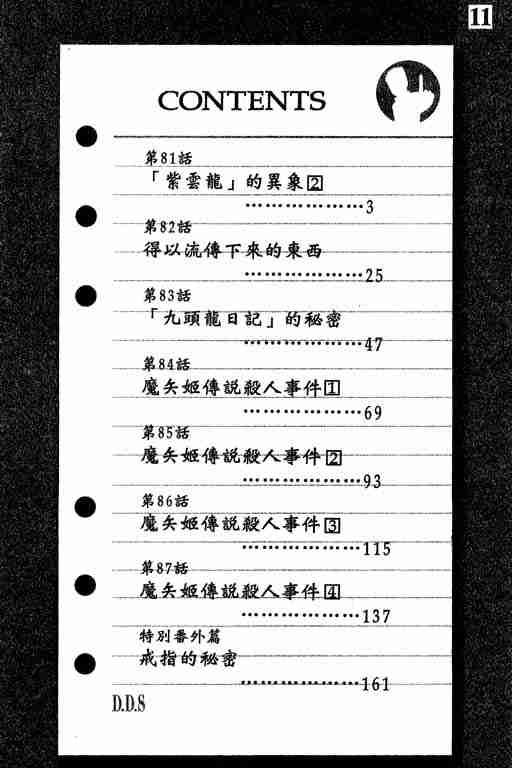 11
CONTENTS
第81話
「紫雲龍」的異象2
………………3
第82話
得以流傳下來的東西
………………25
第83話
「九頭龍日記」的秘密
………………47
第84話
魔矢姬傳說殺人事件1
………………69
第85話
魔矢姬傳說殺人事件2
………………93
第86話
魔矢姬傳說殺人事件3
………………115
第87話
魔矢姬傳說殺人事件4
………………137
特別番外篇
戒指的秘密
………………161
D.D.S